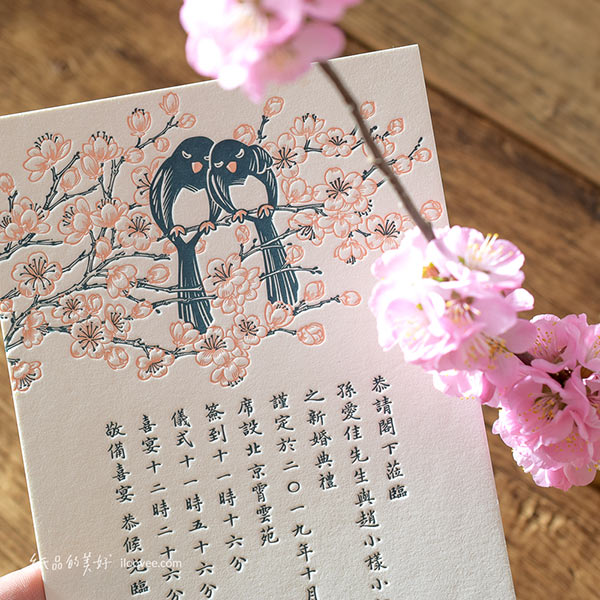 恭請閣下蒞臨
孫愛佳先生與趙小樣小
之新婚典禮
謹定於二〇一九年十月
席設北京霄雲苑
簽到十一時十六分
儀式十一時五十六分
喜宴十二時二十六分
敬備喜宴 恭候 臨
紙品的美好 ilovee.com